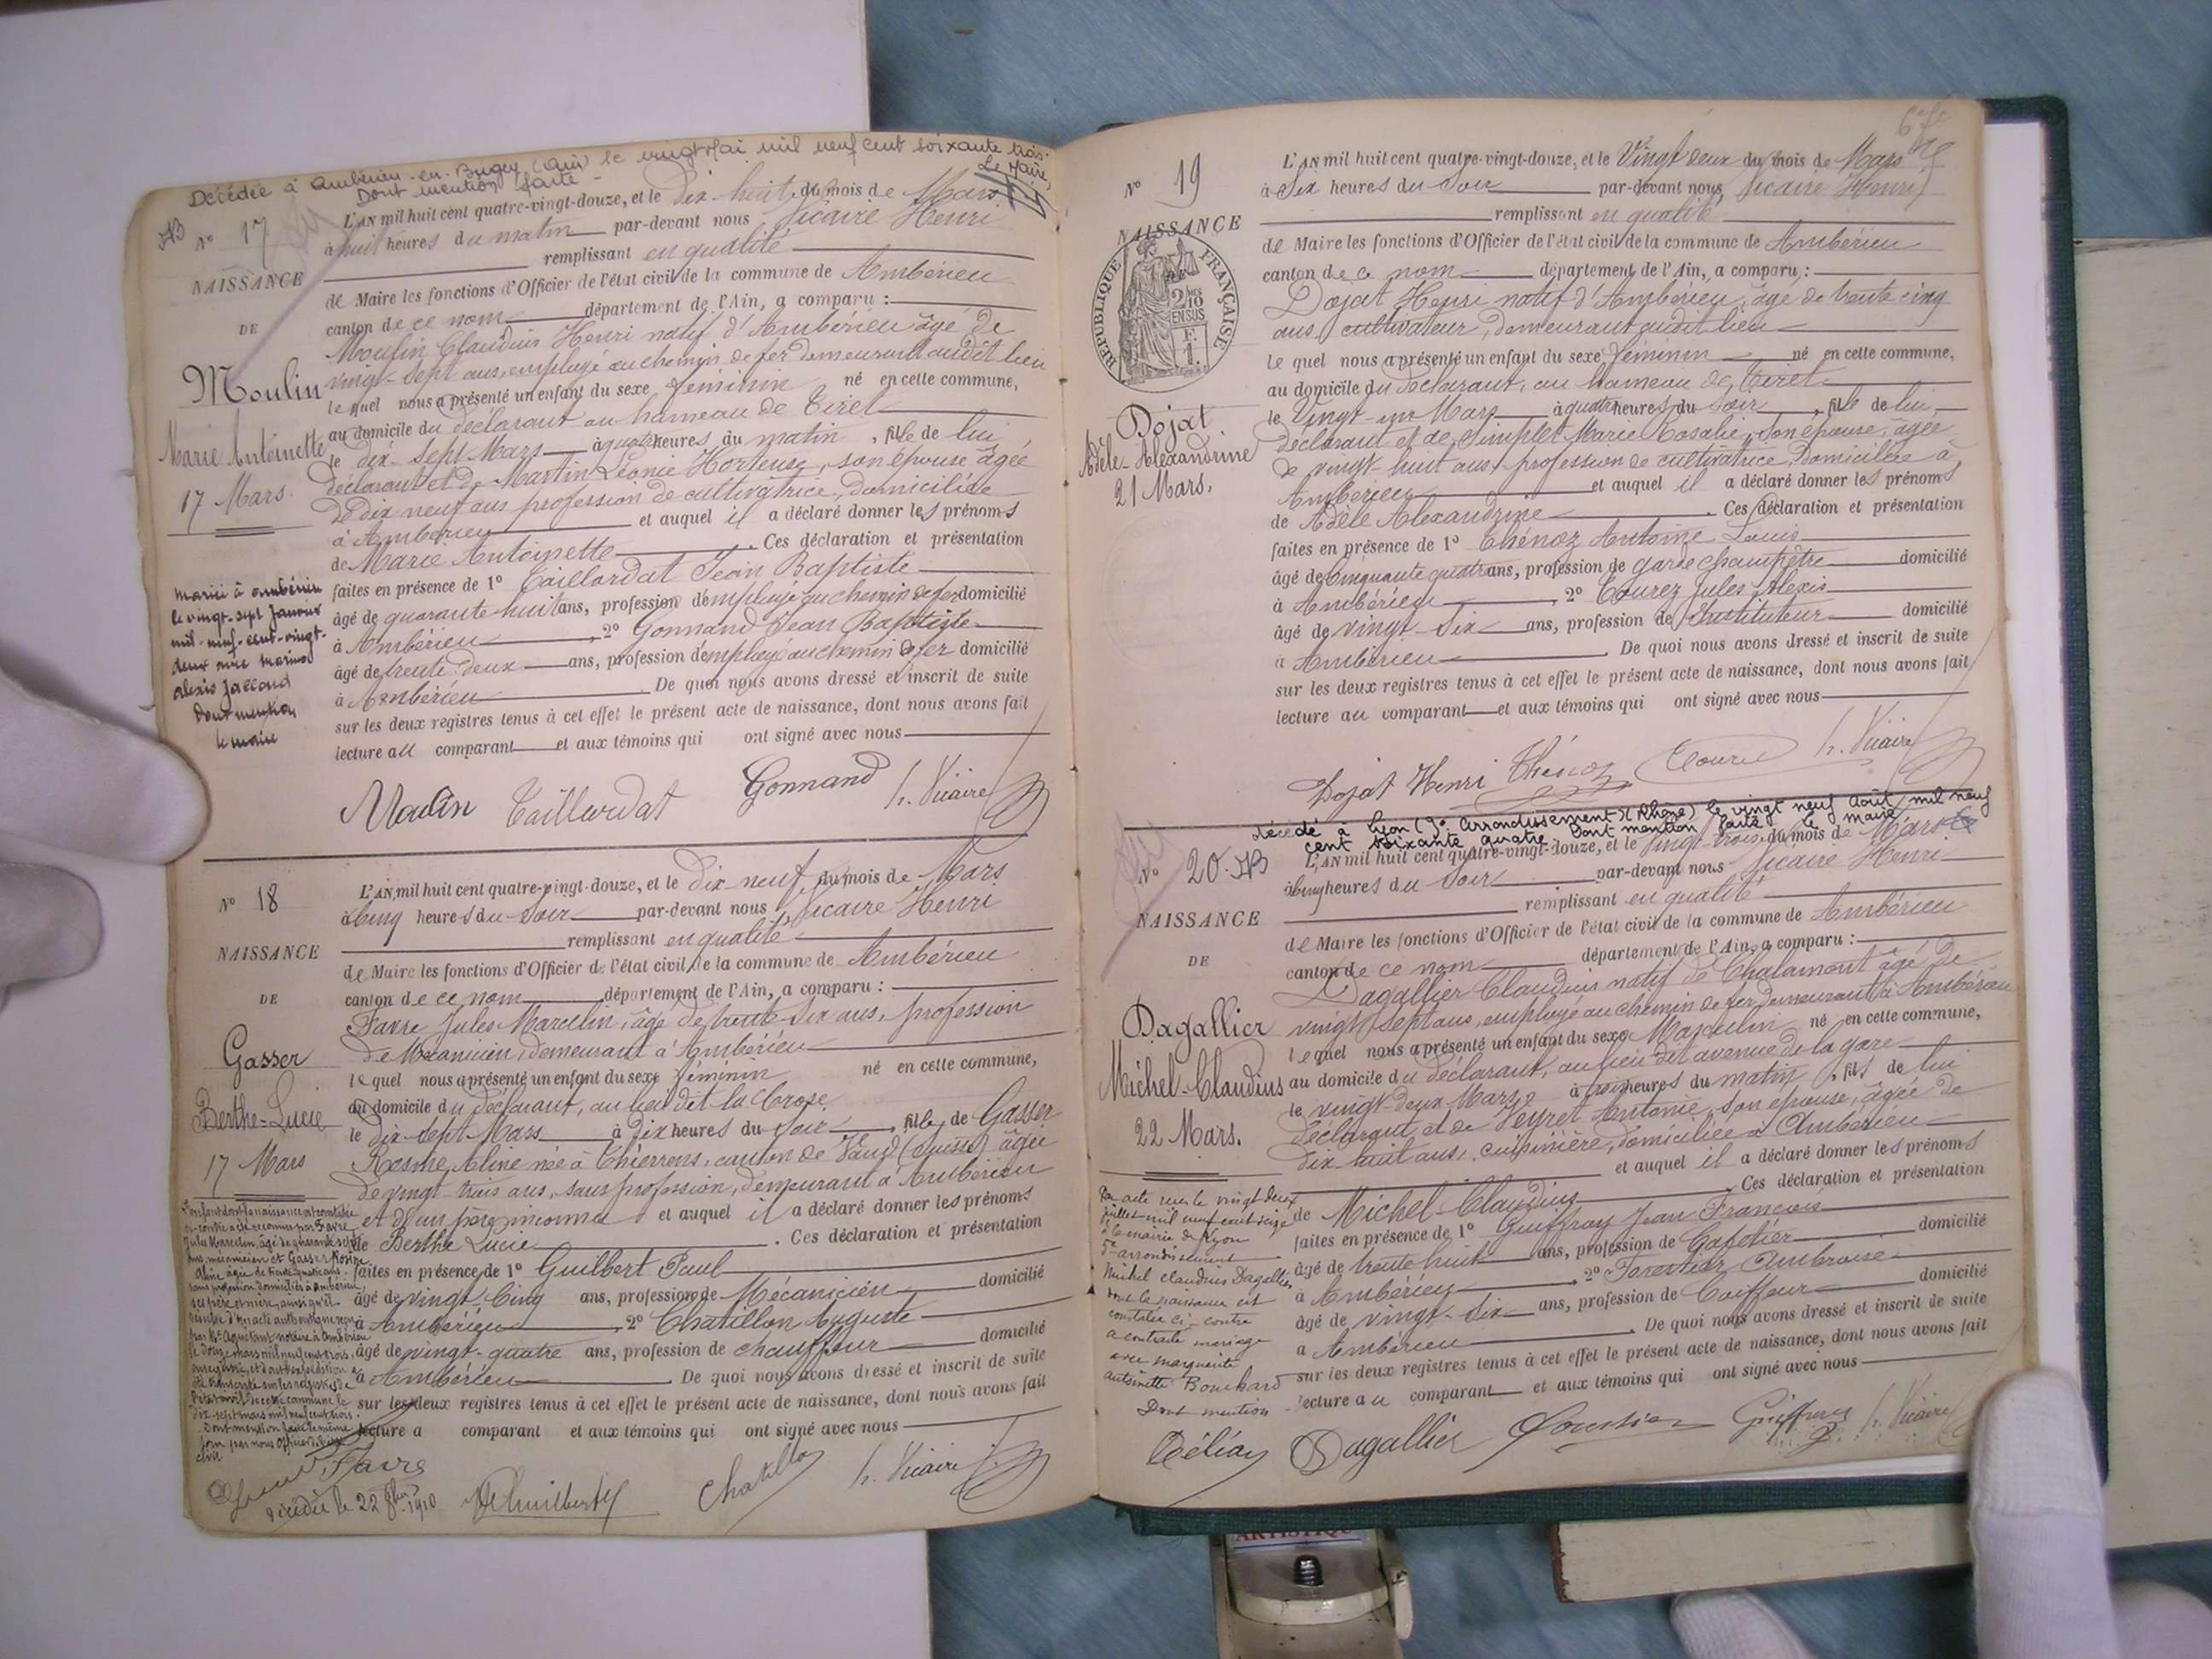 Décédée à Ambérieu-en-Bugey (Ain) le vingt Mai mil neuf cent soixante trois.
Dont mention faite - Le Maire,
N° 17
NAISSANCE
DE
Moulin
Marie Antoinette
17 Mars.
L'AN mil huit cent quatre-vingt-douze, et le Dix-huit du mois de Mars
à huit heures du matin par-devant nous Vicaire Henri
remplissant en qualité
de Maire les fonctions d'Officier de l'état civil de la commune de Ambérieu
canton de ce nom département de l'Ain, a comparu :
Moulin Claudius Henri natif d'Ambérieu âgé de
vingt-sept ans, employé au chemin de fer demeurant audit lieu
lequel nous a présenté un enfant du sexe féminin né en cette commune,
au domicile du déclarant au hameau de Tiret
le dix-sept Mars à quatre heures du matin, fille de lui
déclarant et de Martin Léonie Hortense, son épouse âgée
de dix neuf ans profession de cultivatrice, domiciliée
à Ambérieu et auquel il a déclaré donner les prénoms
de Marie Antoinette. Ces déclaration et présentation
faites en présence de 1° Taillardat Jean Baptiste
âgé de quarante huit ans, profession d'employé au chemin de fer domicilié
à Ambérieu, 2° Gonnand Jean Baptiste
âgé de trente-deux ans, profession d'employé au chemin de fer domicilié
à Ambérieu. De quoi nous avons dressé et inscrit de suite
sur les deux registres tenus à cet effet le présent acte de naissance, dont nous avons fait
lecture au comparant et aux témoins qui ont signé avec nous
Mariée à Ambérieu
le vingt-sept Janvier
mil-neuf-cent-vingt-
deux avec Marius
Alexis Jalland
Dont mention
le maire
Moulin Taillardat Gonnand h. Vicaire
N° 18
NAISSANCE
DE
Gasser
Berthe-Lucie
17 Mars
L'AN mil huit cent quatre-vingt-douze, et le Dix-neuf du mois de Mars
à Cinq heures du Soir par-devant nous Vicaire Henri
remplissant en qualité
de Maire les fonctions d'Officier de l'état civil de la commune de Ambérieu
canton de ce nom département de l'Ain, a comparu :
Favre Jules Marcelin, âgé de trente-six ans, profession
de Mécanicien, demeurant à Ambérieu
lequel nous a présenté un enfant du sexe féminin né en cette commune,
au domicile du déclarant, au lieu dit la Croze
le dix-sept Mars à dix heures du soir, fille de Gasser
Rosine Aline née à Thierrens, canton de Vaud (Suisse) âgée
de vingt-trois ans, sans profession, demeurant à Ambérieu
et d'un père inconnu et auquel il a déclaré donner les prénoms
de Berthe Lucie. Ces déclaration et présentation
faites en présence de 1° Guilbert Paul
âgé de vingt-cinq ans, profession de Mécanicien domicilié
à Ambérieu, 2° Chatillon Auguste
âgé de vingt-quatre ans, profession de chauffeur domicilié
à Ambérieu. De quoi nous avons dressé et inscrit de suite
sur les deux registres tenus à cet effet le présent acte de naissance, dont nous avons fait
lecture a comparant et aux témoins qui ont signé avec nous
L'enfant dont la naissance est constatée
ci-contre a été reconnue par Favre
Jules Marcelin, âgé de quarante sept
ans, mécanicien et Gasser Rosine
Aline âgée de trente quatre ans
sans profession domiciliés à Ambérieu
ses père et mère, ainsi qu'il
résulte d'un acte authentique reçu
par Me notaire à Ambérieu
le douze mars mil neuf cent trois,
enregistré, et dont expédition a
été transcrite sur les registres de
l'état civil de cette commune le
dix-sept mars mil neuf cent trois.
Dont mention faite le même
jour par nous Officier de l'état
civil
Favre
décédée le 22 1910
Guilbert Chatillon h. Vicaire
67
N° 19
NAISSANCE
DE
REPUBLIQUE FRANÇAISE
2/10 EN SUS
F.
1.
Dojat
Adèle-Alexandrine
21 Mars.
L'AN mil huit cent quatre-vingt-douze, et le Vingt deux du mois de Mars
à Six heures du Soir par-devant nous, Vicaire Henri
remplissant en qualité
de Maire les fonctions d'Officier de l'état civil de la commune de Ambérieu
canton de ce nom département de l'Ain, a comparu :
Dojat Henri natif d'Ambérieu, âgé de trente cinq
ans, cultivateur, demeurant audit lieu
lequel nous a présenté un enfant du sexe féminin né en cette commune,
au domicile du déclarant, au hameau de Tiret
le Vingt-un Mars à quatre heures du Soir, fille de lui,
déclarant et de Simplet Marie Rosalie, son épouse, âgée
de vingt-huit ans, profession de cultivatrice, domiciliée à
Ambérieu et auquel il a déclaré donner les prénoms
de Adèle Alexandrine. Ces déclaration et présentation
faites en présence de 1° Thénoz Antoine Louis
âgé de Cinquante quatre ans, profession de garde champêtre domicilié
à Ambérieu, 2° Tourez Jules Alexis
âgé de vingt-Six ans, profession de Instituteur domicilié
à Ambérieu. De quoi nous avons dressé et inscrit de suite
sur les deux registres tenus à cet effet le présent acte de naissance, dont nous avons fait
lecture au comparant et aux témoins qui ont signé avec nous
Dojat Henri Thénoz Tourez h. Vicaire
Décédé à Lyon (3e Arrondissement) (Rhône) le vingt neuf Août mil neuf
cent soixante quatre Dont mention faite le maire
N° 20
NAISSANCE
DE
Dagallier
Michel-Claudius
22 Mars.
L'AN mil huit cent quatre-vingt-douze, et le Vingt-trois du mois de Mars
à cinq heures du Soir par-devant nous Vicaire Henri
remplissant en qualité
de Maire les fonctions d'Officier de l'état civil de la commune de Ambérieu
canton de ce nom département de l'Ain, a comparu :
Dagallier Claudius natif de Chalamont âgé de
vingt-sept ans, employé au chemin de fer demeurant à Ambérieu
lequel nous a présenté un enfant du sexe Masculin né en cette commune,
au domicile du déclarant, au lieu dit avenue de la gare
le vingt-deux Mars à heures du matin, fils de lui
déclarant et de Peyret Antonie, son épouse, âgée de
dix-huit ans, cuisinière, domiciliée à Ambérieu
et auquel il a déclaré donner les prénoms
de Michel-Claudius. Ces déclaration et présentation
faites en présence de 1° Guiffray Jean François
âgé de trente huit ans, profession de Cafetier domicilié
à Ambérieu, 2° Forestier Ambroise
âgé de vingt-six ans, profession de Coiffeur domicilié
à Ambérieu. De quoi nous avons dressé et inscrit de suite
sur les deux registres tenus à cet effet le présent acte de naissance, dont nous avons fait
lecture au comparant et aux témoins qui ont signé avec nous
Par acte reçu le vingt deux
juillet mil neuf cent seize
à la mairie de Lyon
5e arrondissement
Michel Claudius Dagallier
dont la naissance est
constatée ci-contre
a contracté mariage
avec Marguerite
Antoinette Bouchard
Dont mention
Dagallier Forestier Guiffray h. Vicaire
ARTISTIQUE